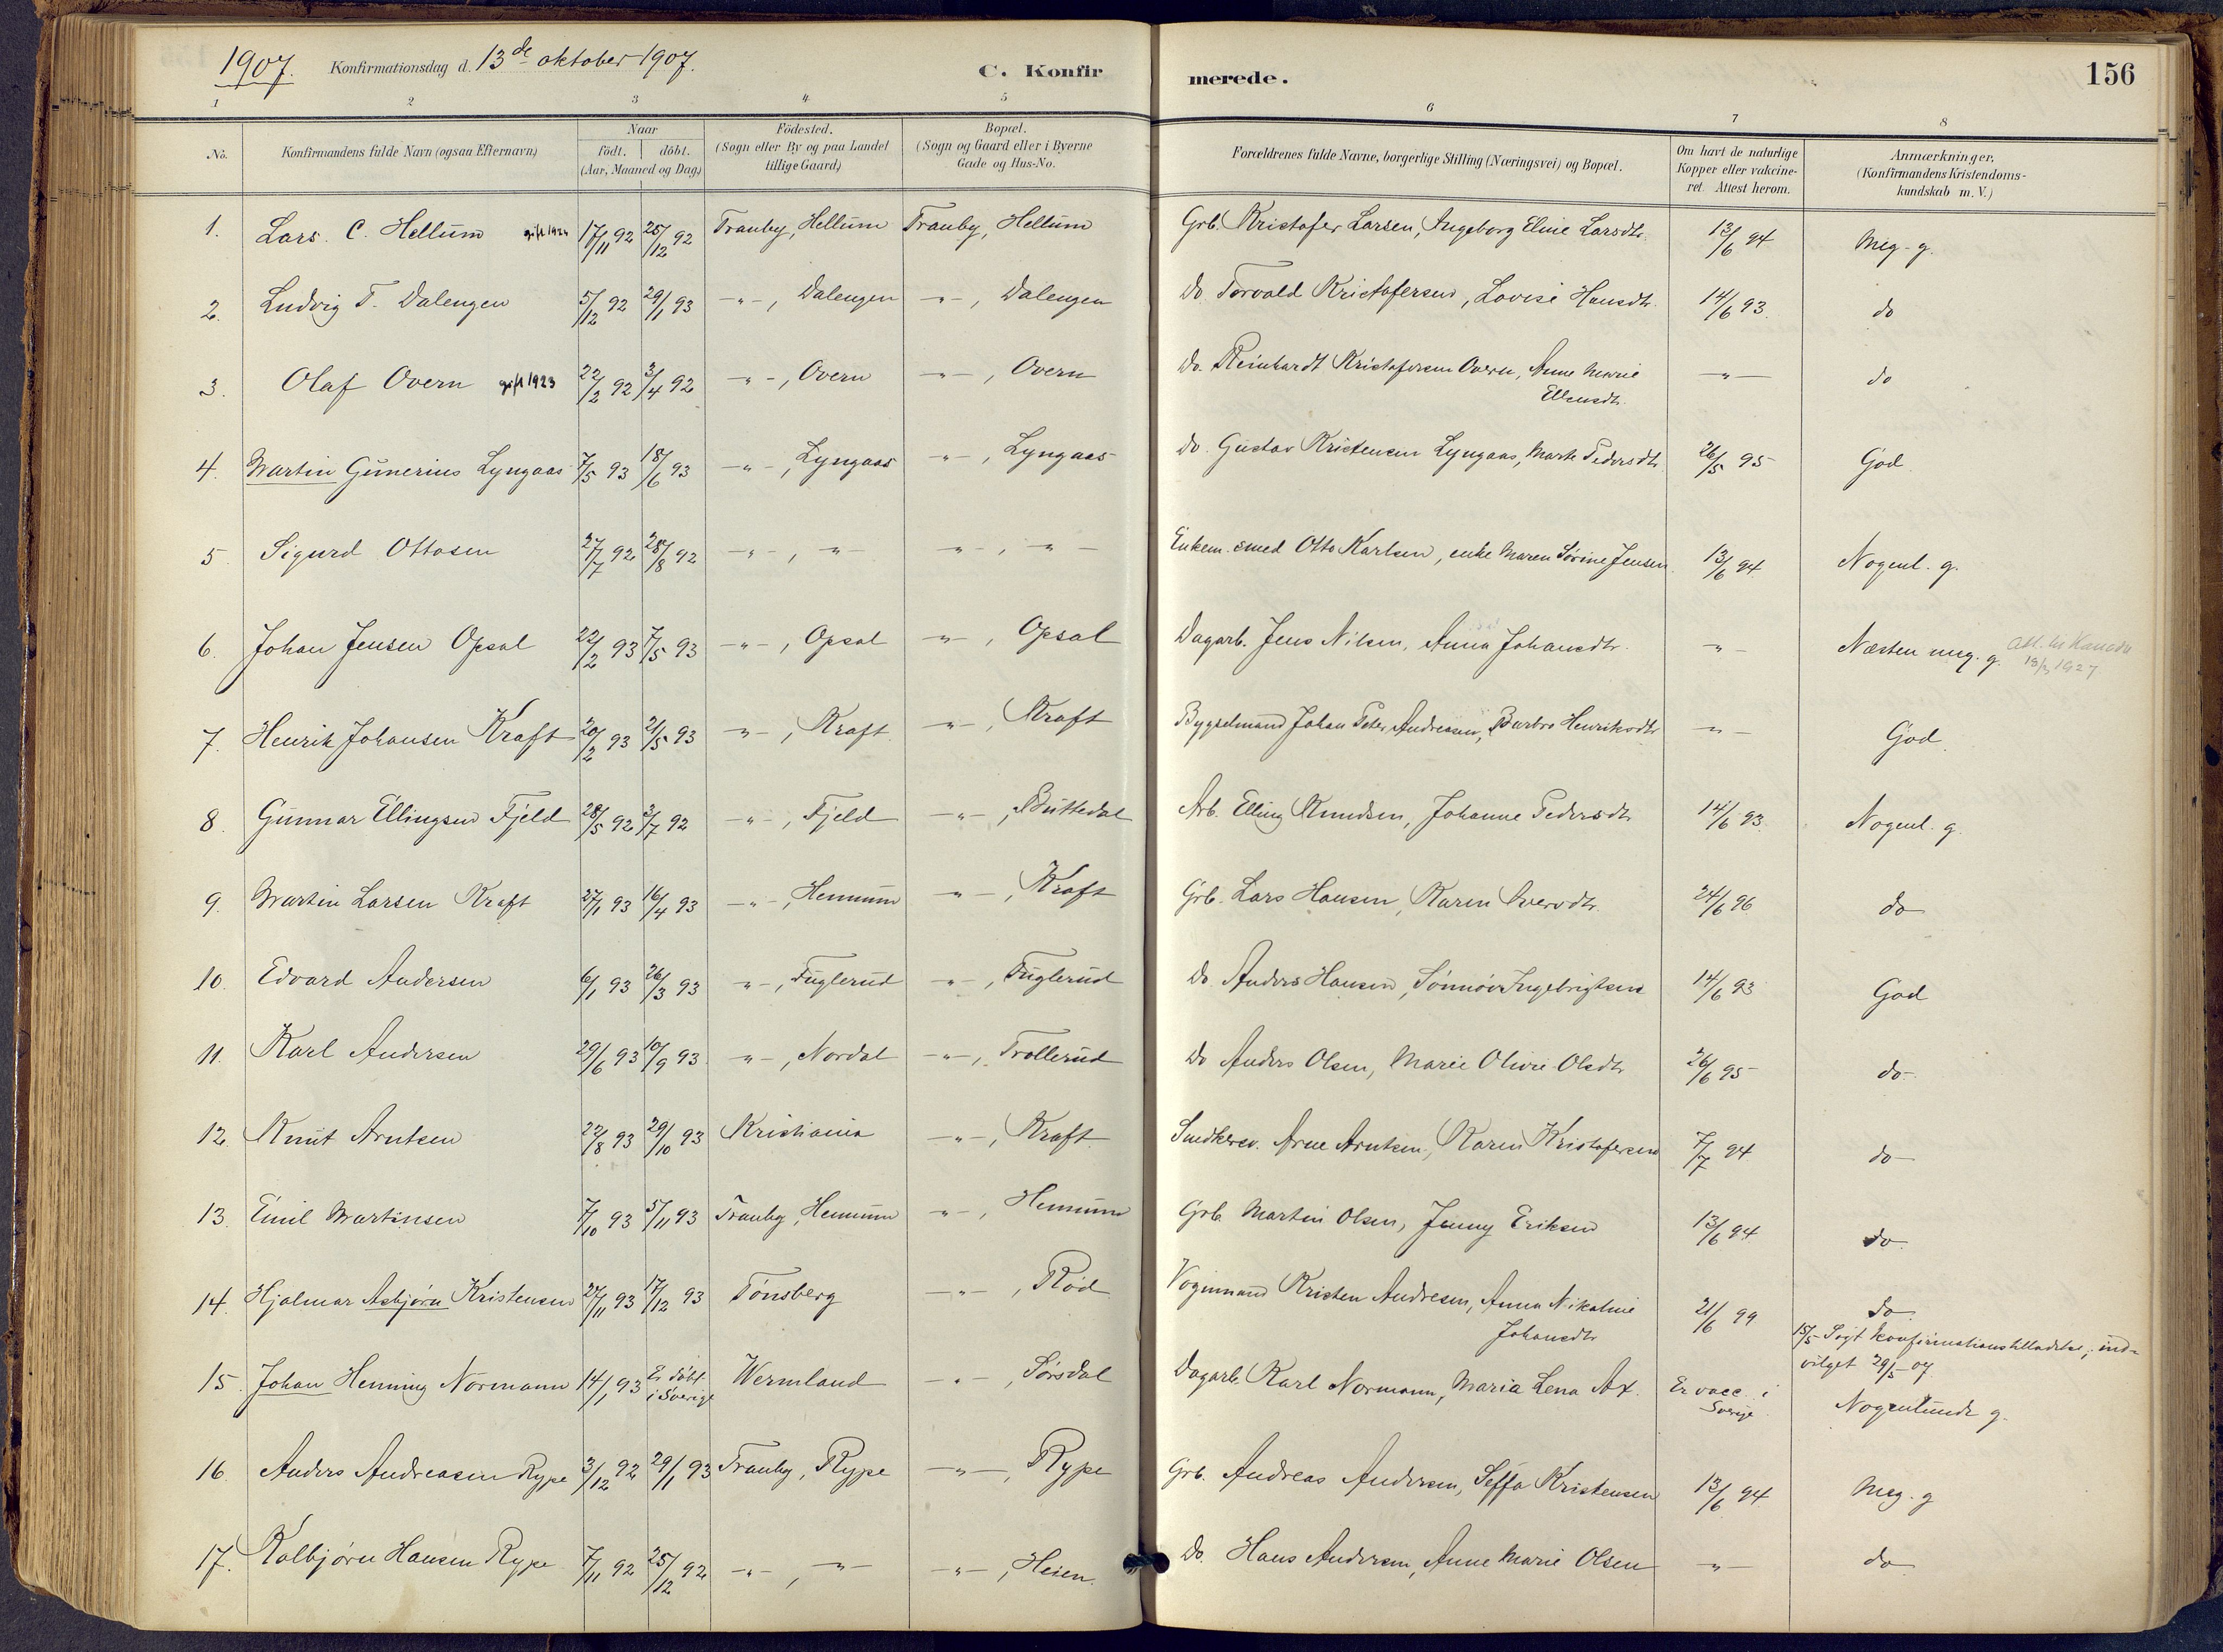 1907. Konfirmationsdag d. 13de oktober 1907. C. Konfirmerede. 156
1 2 3 4 5 6 7 8
No. Konfirmandens fulde Navn (ogsaa Efternavn) Naar født. døbt. (Aar, Maaned og Dag) Fødested. (Sogn eller By og paa Landet tillige Gaard) Bopæl. (Sogn og Gaard eller i Byerne Gade og Hus-No. Forældrenes fulde Navne, borgerlige Stilling (Næringsvei) og Bopæl. Om havt de naturlige Kopper eller vakcineret. Attest herom. Anmærkninger, (Konfirmandens Kristendomskundskab m. V.)
1. Lars. C. Hellum gift 1924 17/11 92 25/12 92 Tranby, Hellum Tranby, Hellum Grb. Kristofer Larsen, Ingeborg Eline Larsdtr. 13/6 94 Meg. g.
2. Ludvig T. Dalengen 5/12 92 29/1 93 -"-, Dalengen -"-, Dalengen Do. Torvald Kristofersen, Lovise Hansdtr. 14/6 93. do
3. Olaf Overn gift 1923 22/2 92 3/4 92 -"-, Overn -"-, Overn Do. Reinhardt Kristofersen Overn, Anne Marie -"- do
Ellensdtr.
4. Martin Gunerius Lyngaas 7/5 93 18/6 93 -"-, Lyngaas -"-, Lyngaas Do. Gustav Kristensen Lyngaas, Marte Pedersdtr. 26/5 95 God.
5 Sigurd Ottosen 27/7 92 28/8 92 -"-, -"- -"-, -"- Enkem. smed Otto Karlsen, enke Maren Sørine Jensen. 13/6 94. Nogenl. g.
6. Johan Jensen Opsal 22/2 93 7/5 93 -"-, Opsal -"-, Opsal Dagarb. Jens Nilsen, Anna Johansdtr. -"- Næsten meg. g. att. til Kanada
1927
7. Henrik Johansen Kraft 20/2 93 21/5 93 -"-, Kraft -"-, Kraft Bygselmand Johan Peter Andreasen, Barbro Henriksdtr -"- God.
8. Gunnar Ellingsen Fjeld 28/5 92 3/7 92 -"-, Fjeld -"-, Buttedal Arb. Elling Knudsen, Johanne Pedersdtr. 14/6 93. Nogenl. g.
9. Martin Larsen Kraft 27/1 93 16/4 93 -"-, Hennum -"-, Kraft Grb. Lars Hansen, Karen Iversdtr. 24/6 96 do
10. Edvard Andersen 6/1 93 26/3 93 -"-, Fuglerud -"-, Fuglerud Do Anders Hansen, Sønnøv Ingebrigtsen 14/6 93 God
11. Karl Andersen 29/6 93 10/9 93. -"-, Nordal -"-, Trollerud Do Anders Olsen, Marie Olivie Olsdtr 26/6 95 do-
12. Knut Arntsen 22/8 93 29/10 93 Kristiania -"-, Kraft Snedkersv. Arne Arntsen, Karen Kristofersen 7/7 94 do
13. Emil Martinsen 7/10 93 5/11 93 Tranby, Hennum -"-, Hennum Grb. Martin Olsen, Jenny Eriksen 13/6 94 do.
14. Hjalmar Asbjørn Kristensen 27/11 93 17/12 93 Tønsberg -"-, Rød Vognmand Kristen Andresen, Anna Nikoline 21/6 99 do
Johansdtr 15/5 Søgt konfirmationstilladelse; ind-
vilget 29/5 07
15. Johan Henning Normann 14/1 93 Er døbt i Sverige Wermland -"-, Sørsdal Dagarb. Karl Normann, Maria Lena Ax. Er vacc. i Sverige. Nogenlunde g.
16. Anders Andreasen Rype 3/12 92 29/1 93 Tranby, Rype -"-, Rype Grb. Andreas Andersen, Seffa Kristensen 13/6 94 Meg. g
17. Kolbjørn Hansen Rype 7/11 92 25/12 92 -"-, -"- -"-, Heien. Do. Hans Andersen, Anne Marie Olsen -"- do